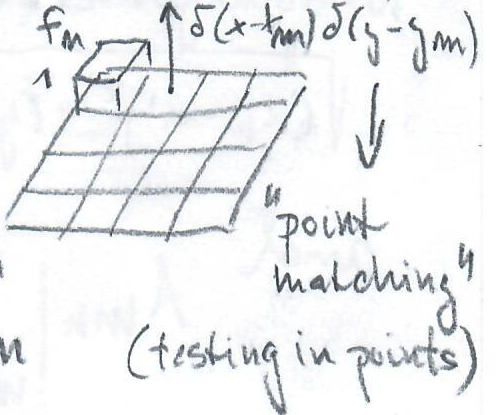 fₙ
δ(x-xₘ)δ(y-yₘ)
1
"point
matching"
n
(testing in points)